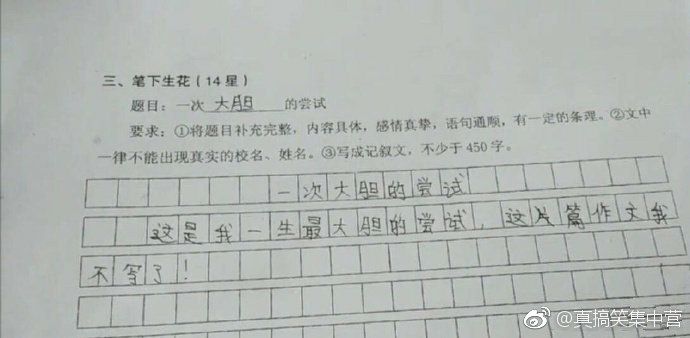 三、笔下生花（14星）
题目：一次 大胆 的尝试
要求：①将题目补充完整，内容具体，感情真挚，语句通顺，有一定的条理。②文中
一律不能出现真实的校名、姓名。③写成记叙文，不少于450字。
一次大胆的尝试
这是我一生最大胆的尝试，这篇作文我
不写了！
@真搞笑集中营